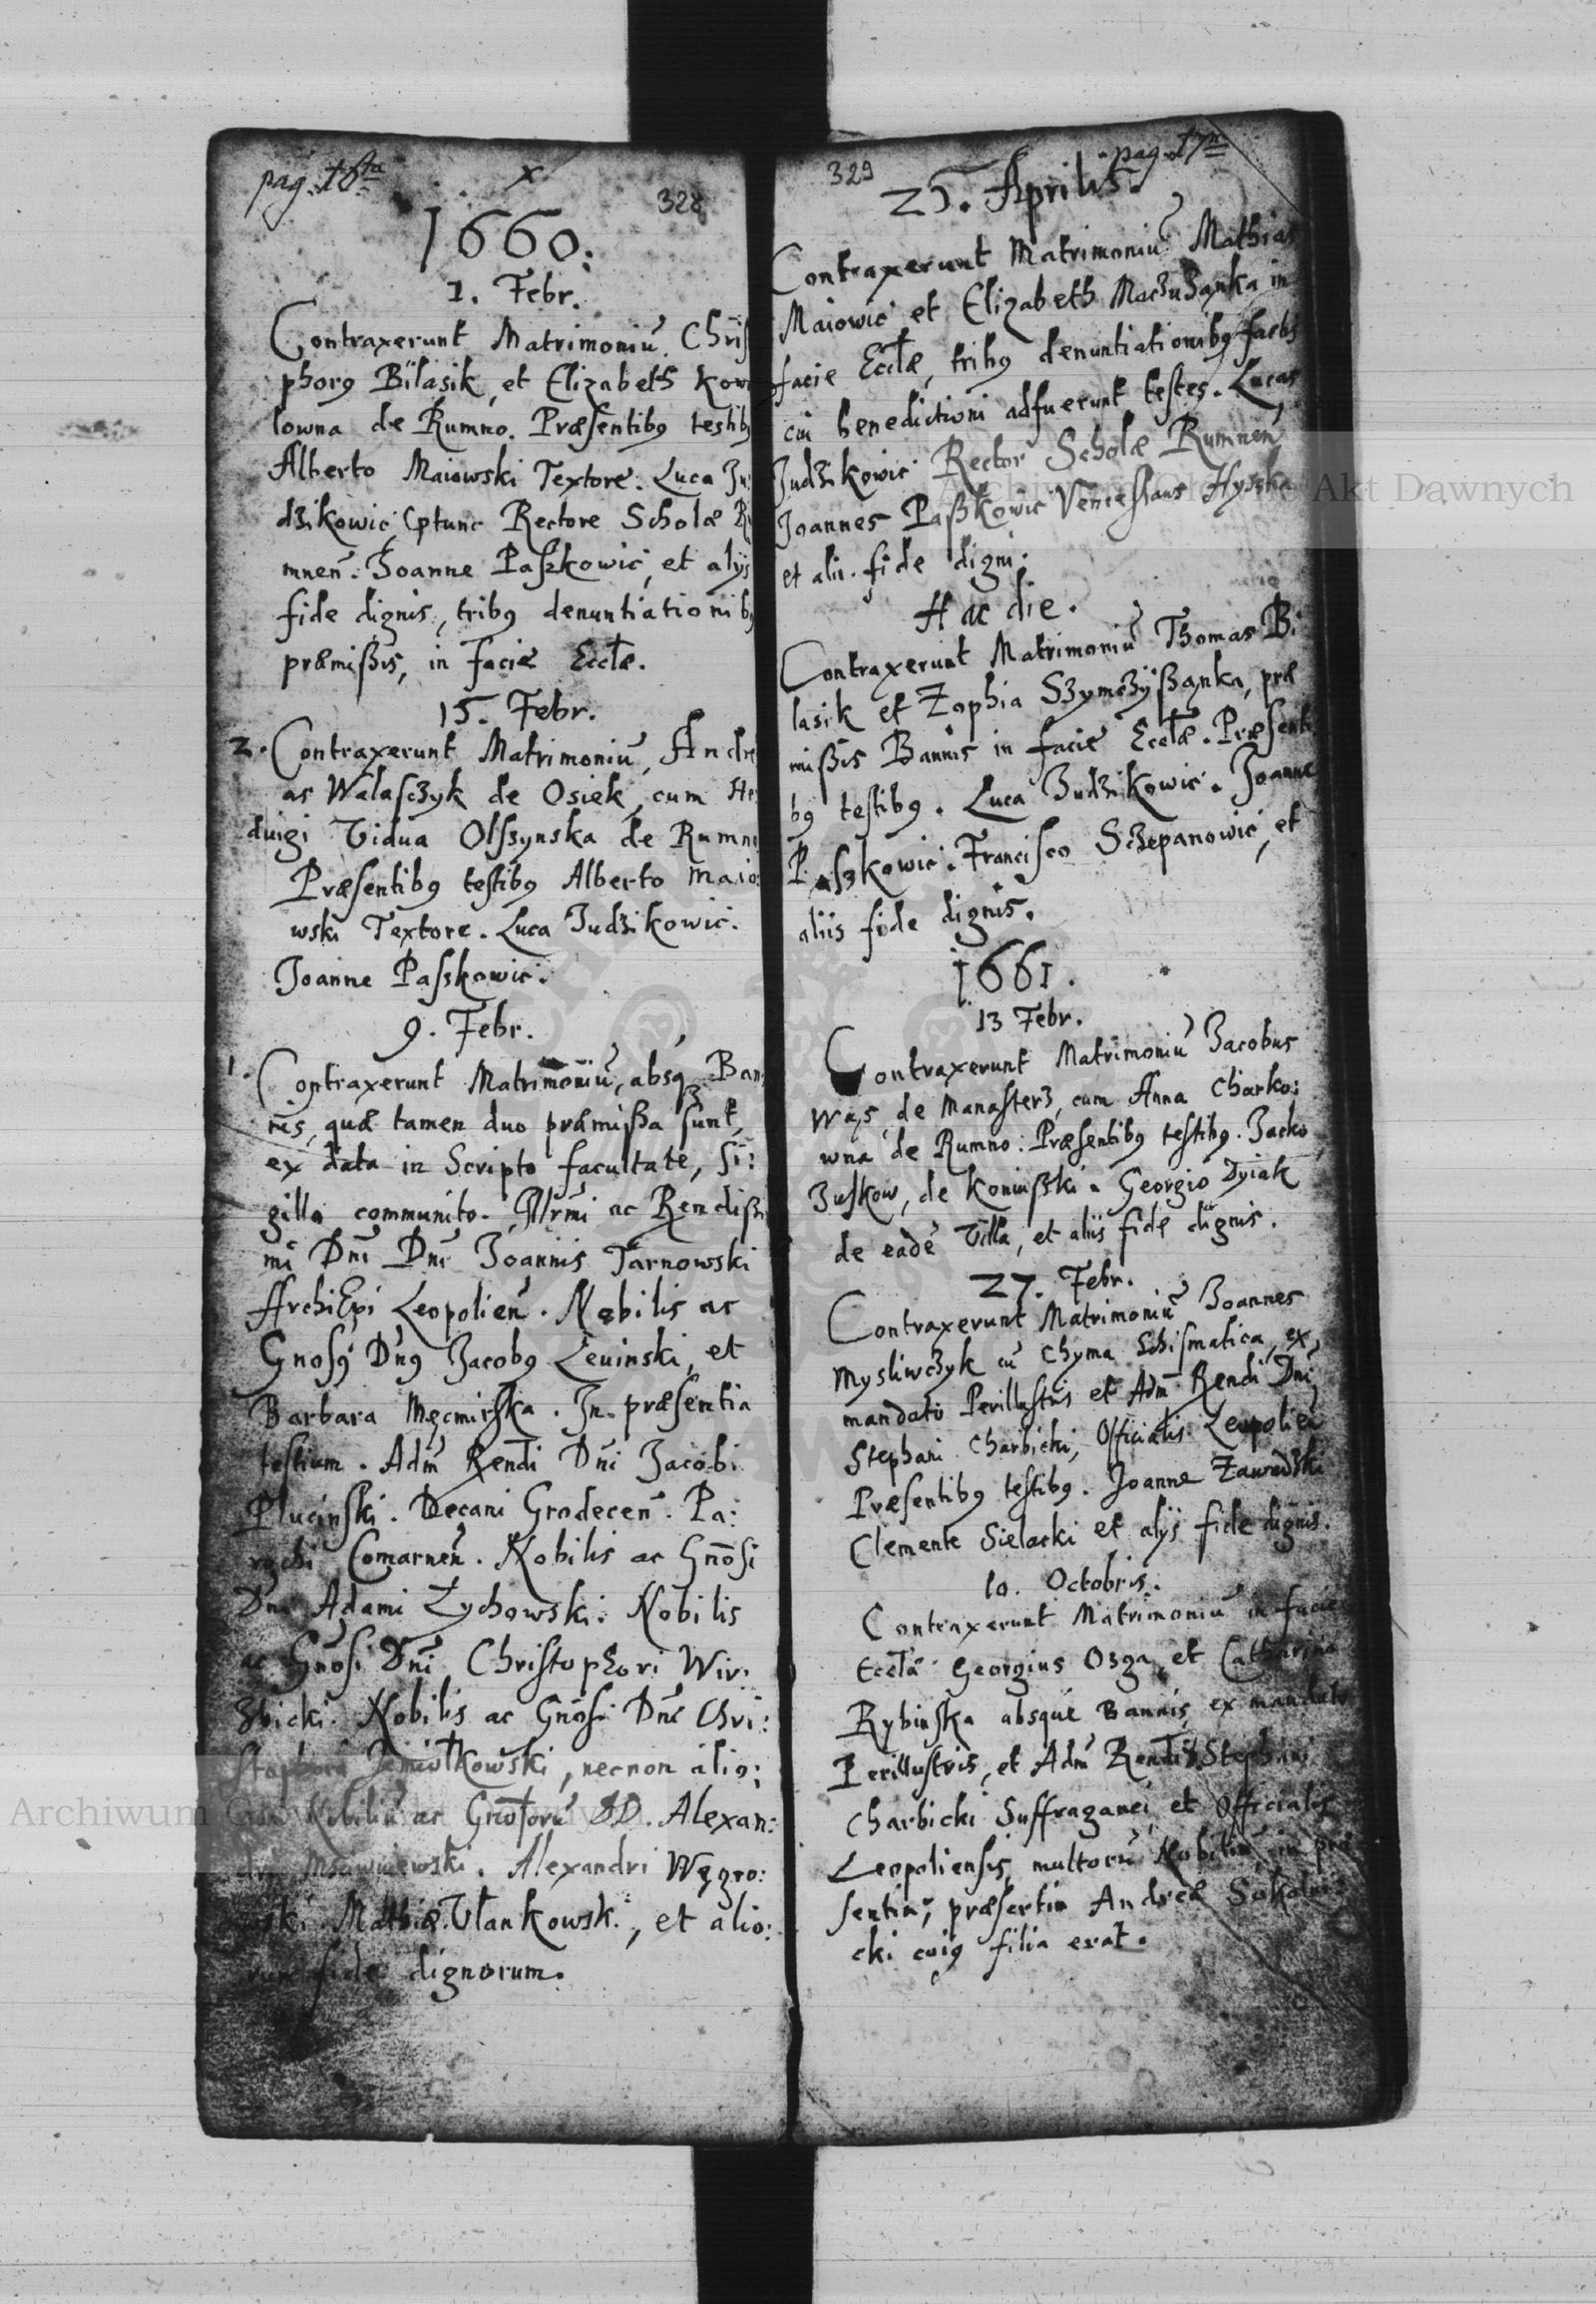 pag. 16ta
x
328
1660.
1. Febr.
Contraxerunt Matrimoniũ Chris
phorꝯ Bilasik, et Elizabeth Kow
lowna de Rumno. Præsentibꝯ testibꝯ
Alberto Maiowski Textore. Luca Ju
dzikowic, Rectore Scholæ Ru
mneñ. Joanne Paszkowic, et alijs
fide dignis, tribꝯ denuntiationibꝯ
præmißis, in facie Eccłæ.
15. Febr.
2. Contraxerunt Matrimoniũ, Andre
as Walasczyk de Osiek, cum He
duigi Vidua Olszynska de Rumno
Præsentibꝯ testibꝯ Alberto Maio:
wski Textore. Luca Judzikowic.
Joanne Paszkowic.
9. Febr.
1. Contraxerunt Matrimoniũ, absqꝫ Ban
nis, quæ tamen duo præmißa sunt,
ex data in Scripto facultate, Si:
gillo communito. Illrmi ac Rendißi
mi Dñi Dñi Joannis Tarnowski
ArchiEpi Leopolieñ. Nobilis ac
Gnosꝯ Dñꝯ Jacobꝯ Leuinski, et
Barbara Męcmirska. In præsentia
testium. Adm̃ Rendi Dñi Jacobi
Plucinski. Decani Grodeceñ. Pa:
rochi Comarneñ. Nobilis ac Gnõsi
Dni Adami Zychowski. Nobilis
ac Gnõsi Dñi Christophori Wir:
zbicki. Nobilis ac Gnõsi Dñi Chri:
stophori kowski, necnon alio:
Nobiliũ ac Gnosorũ DD. Alexan:
dri. Alexandri Węgro:
wski. Mathiæ Ułankowski, et alio:
rum fide dignorum.
329
pag. 17ma
25. Aprilis.
Contraxerunt Matrimoniũ Mathias
Maiowic et Elizabeth Maczużanka in
facie Eccłæ, tribꝯ denuntiationibꝯ factis
cui benedictioni adfuerunt testes. Lucas
Judzikowic Rector Scholæ Rumneñ
Joannes Paßkowic Venceslaus Hyszka
et alii fide digni.
Hac die.
Contraxerunt Matrimoniũ Thomas Bi
lasik et Zophia Szymczyßanka, præ
mißis Bannis in facie Eccłæ. Præsenti
bꝯ testibꝯ. Luca Judzikowic. Joanne
Paszkowic. Francisco Sczepanowic, et
aliis fide dignis.
1661.
13 Febr.
Contraxerunt Matrimoniũ Jacobus
Wąs de Manasterz, cum Anna Charko:
wna de Rumno. Præsentibꝯ testibꝯ. Jacko
Zuskow, de Koniußki. Georgio Dyiak
de eadẽ Villa, et aliis fide dignis.
27. Febr.
Contraxerunt Matrimoniũ Joannes
Mysliwczyk cũ Chyma Schismatica, ex
mandato Perillustris et Adm̃ Rendi Dñi
Stephani Charbicki, Officialis Leopolieñ
Præsentibꝯ testibꝯ. Joanne Zawadzki
Clemente Sielacki et alijs fide dignis.
10. Octobris.
Contraxerunt Matrimoniũ in facie
Eccłæ Georgius Ozga, et Catharina
Rybinska absque Bannis, ex mandato
Perillustris, et Adm̃ Rendi Stephani
Charbicki Suffraganei, et Officialis
Leopoliensis, multorũ Nobiliũ in præ
sentia, præsertim Andreæ Sokolni
cki cuiꝯ filia erat.
Archiwum Główne Akt Dawnych
Archiwum Główne Akt Dawnych